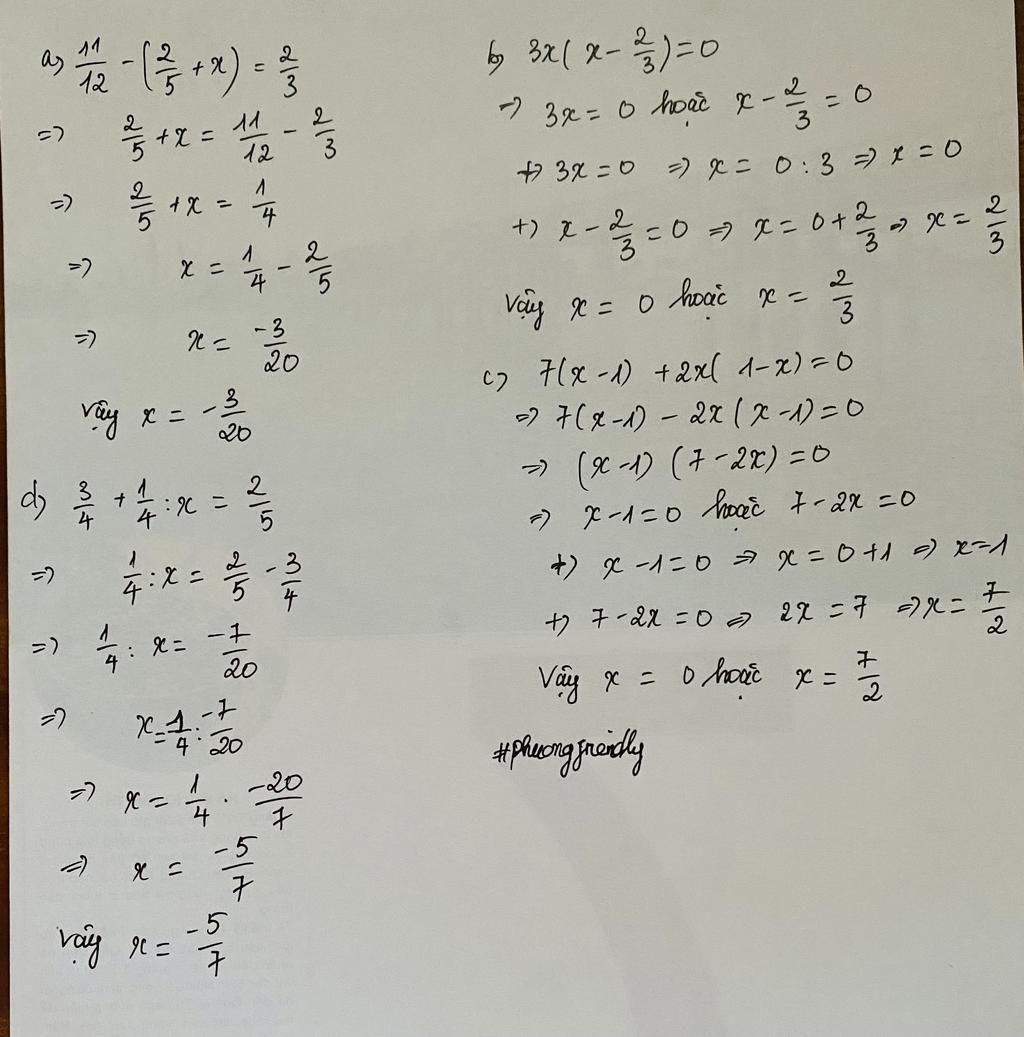 a) 11/12 - (2/5 + x) = 2/3
=> 2/5 + x = 11/12 - 2/3
=> 2/5 + x = 1/4
=> x = 1/4 - 2/5
=> x = -3/20
Vậy x = -3/20
d) 3/4 + 1/4 : x = 2/5
=> 1/4 : x = 2/5 - 3/4
=> 1/4 : x = -7/20
=> x = 1/4 : -7/20
=> x = 1/4 . -20/7
=> x = -5/7
Vậy x = -5/7
b) 3x(x - 2/3) = 0
=> 3x = 0 hoặc x - 2/3 = 0
+) 3x = 0 => x = 0 : 3 => x = 0
+) x - 2/3 = 0 => x = 0 + 2/3 => x = 2/3
Vậy x = 0 hoặc x = 2/3
c) 7(x - 1) + 2x(1 - x) = 0
=> 7(x - 1) - 2x(x - 1) = 0
=> (x - 1)(7 - 2x) = 0
=> x - 1 = 0 hoặc 7 - 2x = 0
+) x - 1 = 0 => x = 0 + 1 => x = 1
+) 7 - 2x = 0 => 2x = 7 => x = 7/2
Vậy x = 0 hoặc x = 7/2
#phuongfreindly